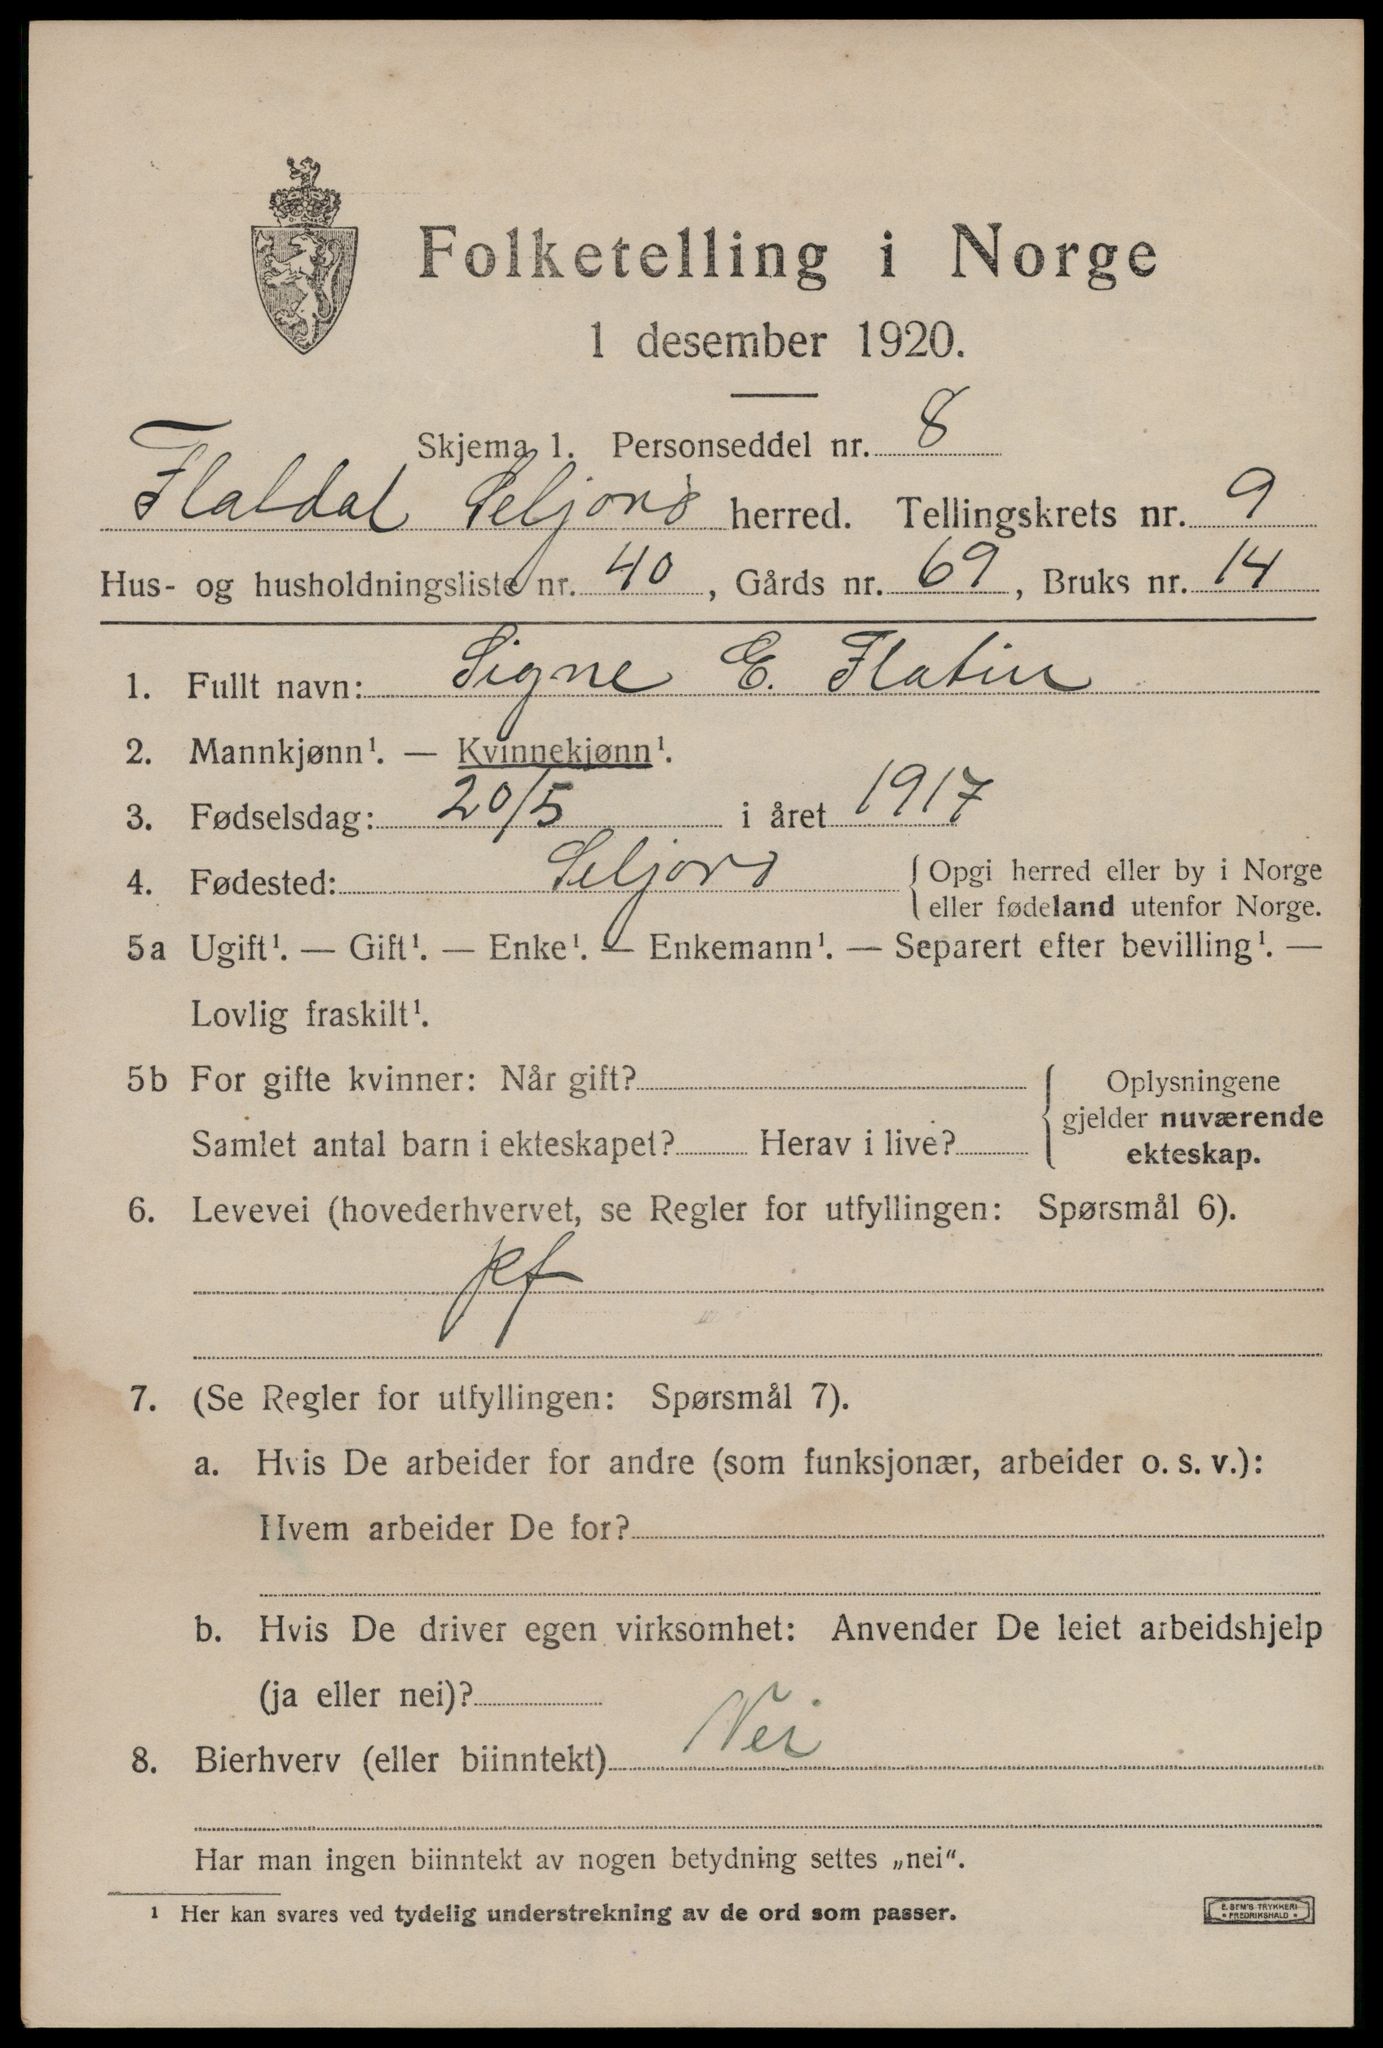 Folketelling i Norge
1 desember 1920.
Skjema 1. Personseddel nr. 8
Flatdal Seljord herred. Tellingskrets nr. 9
Hus- og husholdningsliste nr. 40, Gårds nr. 69, Bruks nr. 14
1. Fullt navn: Signe E. Flatin
2. Mannkjønn¹. — Kvinnekjønn¹.
3. Fødselsdag: 20/5 i året 1917
4. Fødested: Seljord { Opgi herred eller by i Norge
eller fødeland utenfor Norge.
5a Ugift¹. — Gift¹. — Enke¹. — Enkemann¹. — Separert efter bevilling¹. —
Lovlig fraskilt¹.
5b For gifte kvinner: Når gift?
Samlet antal barn i ekteskapet? Herav i live?
{ Oplysningene
gjelder nuværende
ekteskap.
6. Levevei (hovederhvervet, se Regler for utfyllingen: Spørsmål 6).
pf
7. (Se Regler for utfyllingen: Spørsmål 7).
a. Hvis De arbeider for andre (som funksjonær, arbeider o. s. v.):
Hvem arbeider De for?
b. Hvis De driver egen virksomhet: Anvender De leiet arbeidshjelp
(ja eller nei)?
8. Bierhverv (eller biinntekt) Nei
Har man ingen biinntekt av nogen betydning settes „nei“.
¹ Her kan svares ved tydelig understrekning av de ord som passer.
E. SEM'S TRYKKERI
FREDRIKSHALD